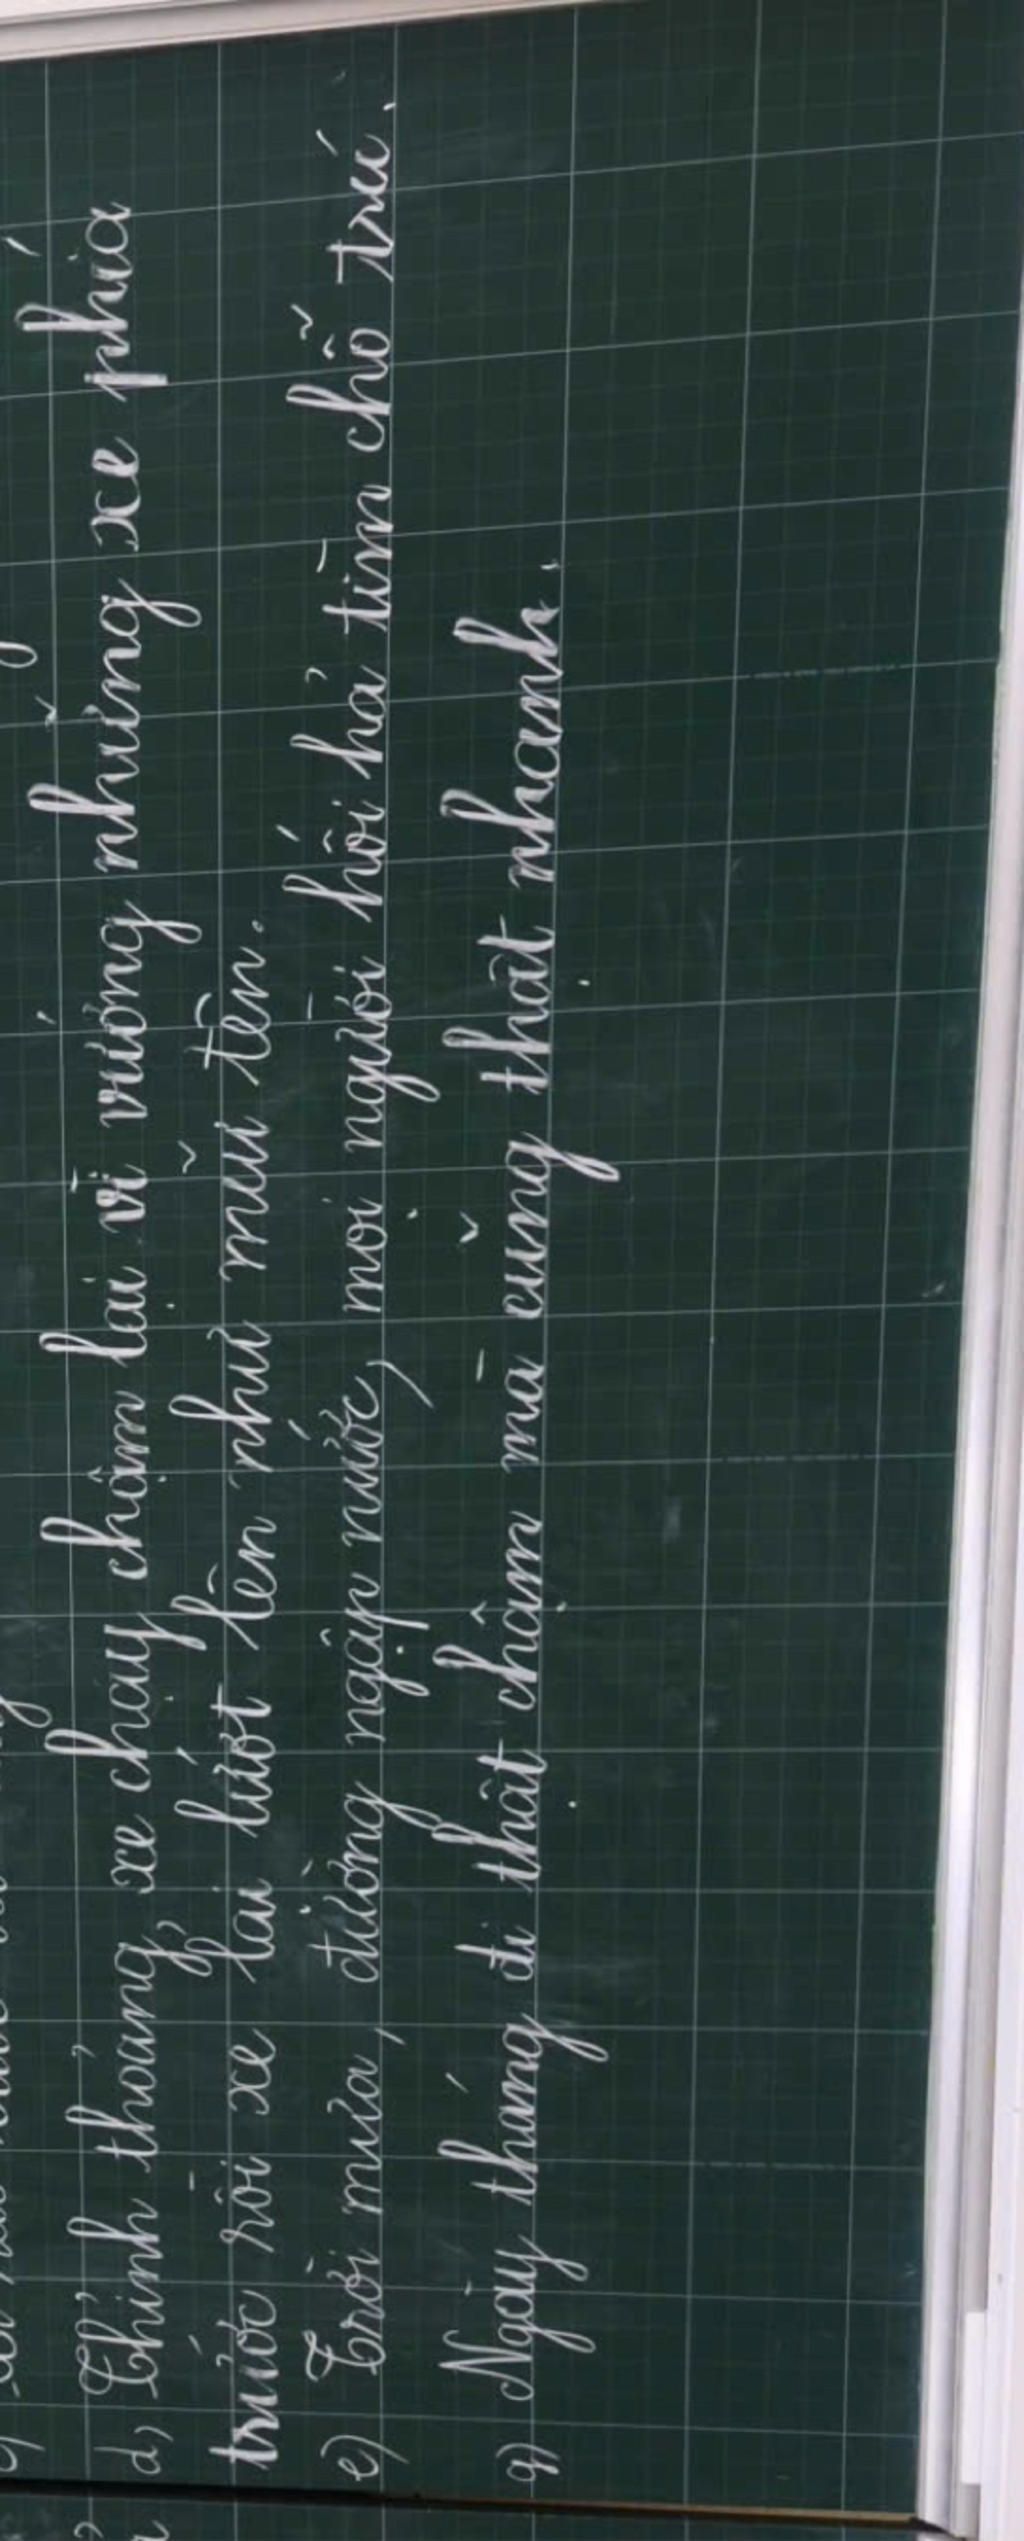 d) Thỉnh thoảng, xe chạy chậm lại vì vướng những xe phía
trước rồi xe lại lướt lên như mũi tên.
e) Trời mưa, đường ngập nước, mọi người hối hả tìm chỗ trú.
g) Ngày tháng đi thật chậm mà cũng thật nhanh.